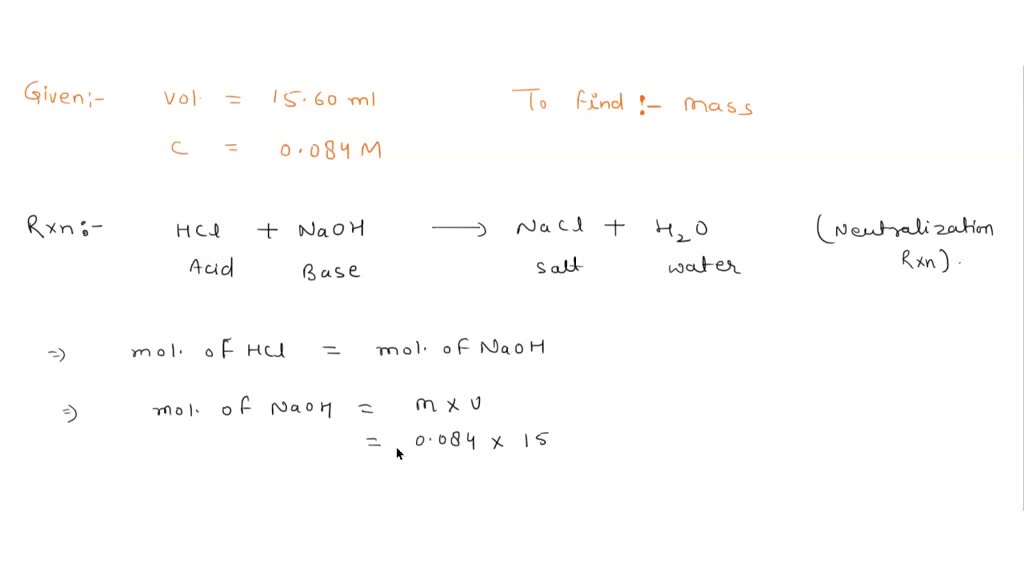 Given:- Vol. = 15.60 ml To find :- mass
C = 0.084 M
Rxn:- HCl + NaOH → NaCl + H₂O (Neutralization
Acid Base Salt water Rxn).
⇒ mol. of HCl = mol. of NaOH
⇒ mol. of NaOH = M x V
= 0.084 x 15